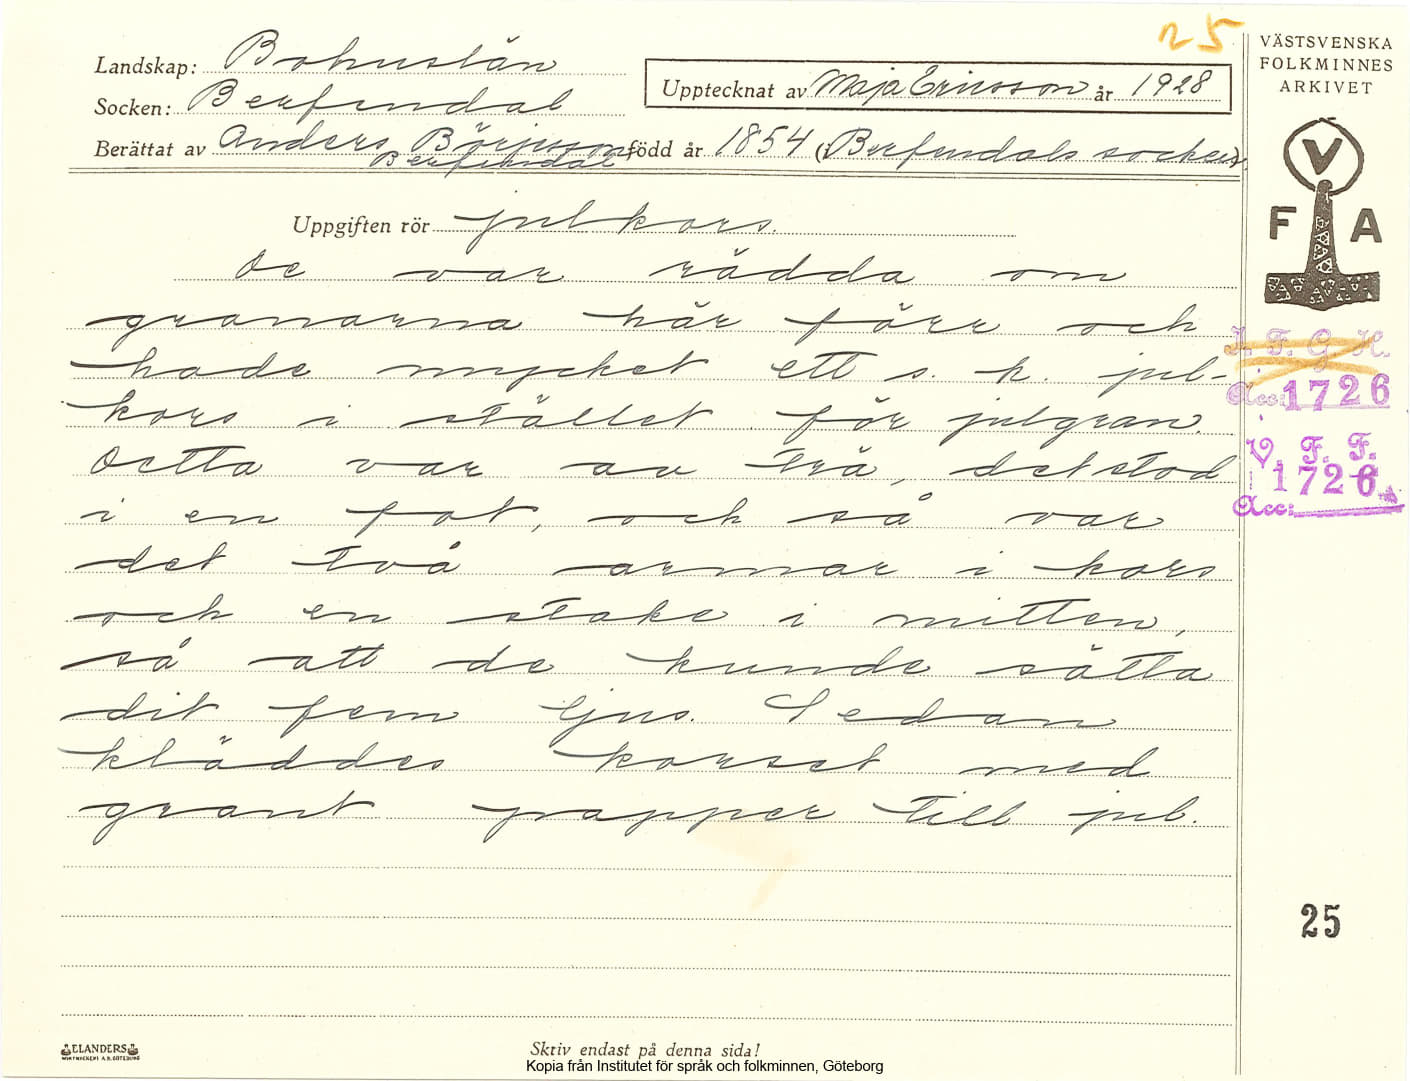 25
VÄSTSVENSKA
FOLKMINNES
ARKIVET
Landskap: Bohuslän
Upptecknat av Maja Ericsson år 1928
Socken: Berfendal
Berättat av Anders Börjesson född år 1854 (i Berfendals socken)
Berfendal
V
F A
Uppgiften rör julkors.
De var rädda om
granarna här förr och
hade mycket ett s. k. jul-
kors i stället för julgran.
Detta var av trä, det stod
i en fot, och så var
det två armar i kors
och en stake i mitten,
så att de kunde sätta
dit fem ljus. Sedan
kläddes korset med
grant papper till jul.
I. F. G. H.
Acc: 1726
V. F. F.
1726
Acc:
25
ELANDERS
Skriv endast på denna sida!
Kopia från Institutet för språk och folkminnen, Göteborg